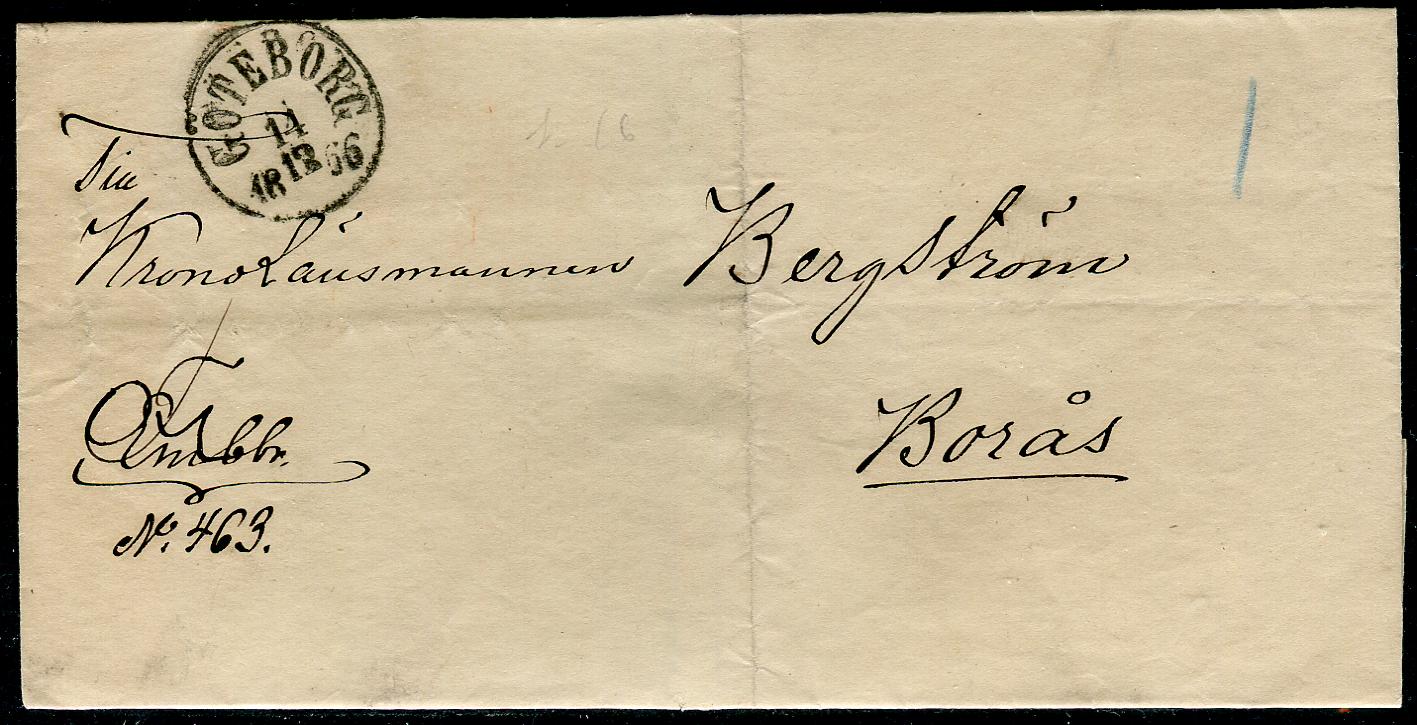 GÖTEBORG
14
12
18 66
Till
KronoLänsmannen Bergström
Borås
Embbr.
No. 463.